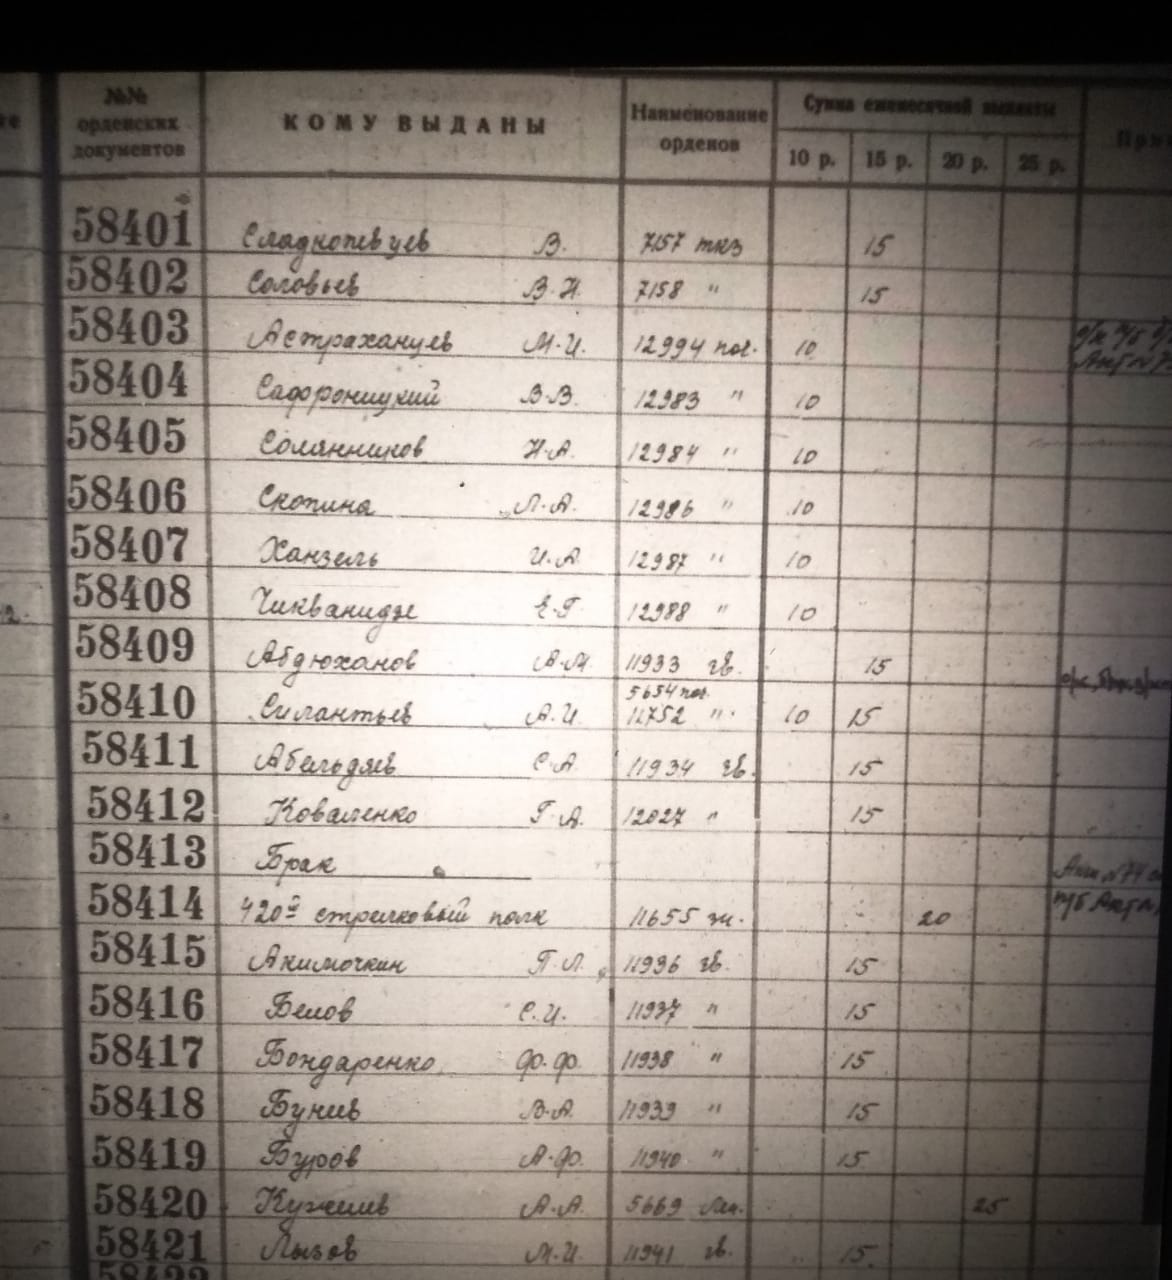 №№ орденских документов КОМУ ВЫДАНЫ Наименование орденов Сумма ежемесячной выплаты
10 р. 15 р. 20 р. 25 р.
58401 Сладкопевцев В. 7157 ткз 15
58402 Соловьев В.Н. 7158 " 15
58403 Астраханцев М.И. 12994 пог. 10
58404 Сафроницкий В.В. 12983 " 10
58405 Солянников Н.А. 12984 " 10
58406 Скопина Л.А. 12986 " 10
58407 Ханзель И.А. 12987 " 10
58408 Чикванидзе Е.Г. 12988 " 10
58409 Абдюханов А.М. 11933 гв. 15
5654 пог.
58410 Силантьев А.И. 11752 " 10 15
58411 Абельдяев С.А. 11934 гв. 15
58412 Коваленко Г.А. 12027 " 15
58413 Брак
58414 420й стрелковый полк 11655 зн. 20
58415 Акимочкин П.Л. 11936 гв. 15
58416 Белов С.И. 11937 " 15
58417 Бондаренко Ф.Ф. 11938 " 15
58418 Бунев В.А. 11939 " 15
58419 Буров А.Ф. 11940 " 15
58420 Кужелев А.А. 5669 Лен. 25
58421 Лызов М.И. 11941 гв. 15